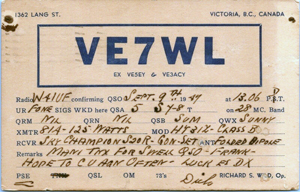 1362 LANG ST. VICTORIA, B.C., CANADA
VE7WL
EX VE5EY & VE3ACY
Radio W4IUE confirming QSO Sept. 9TH 19 at 13.06 P.S.T.
UR Fone SIGS WKD here QSA 5 S9 on 28 MC. Band
QRM NIL QRN NIL QSB SUM QWX SUNNY
XMTR 814 - 125 WATTS MOD HY31Z - CLASS B
RCVR SKY CHAMPION S20R - GON-SET ANT FOLDED DIPOLE
REMARKS MANI TNX FOR SWELL QSO - FRANK -
HOPE TO C U AGN OFTEN - LUCK ES DX
PSE QSL OM 73's Dick RICHARD S. WILD Op.